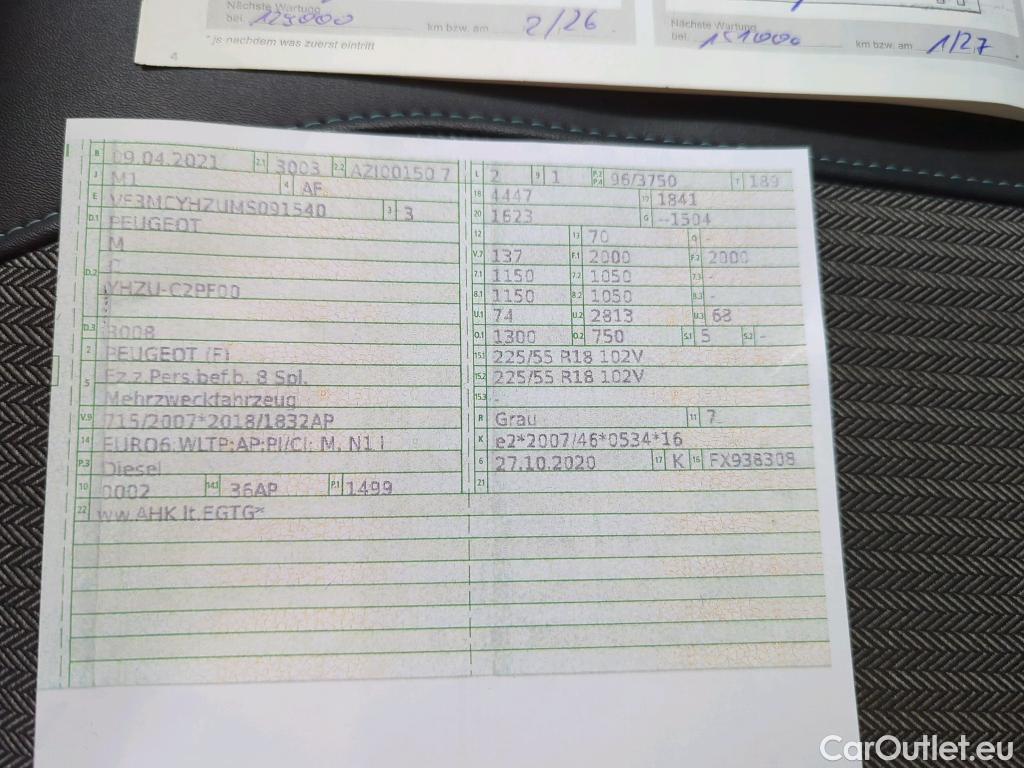 Nächste Wartung
bei 129000 km bzw. am 2/26
* je nachdem was zuerst eintritt
4
Nächste Wartung
bei 151000 km bzw. am 1/27
B 09.04.2021 2.1 3003 2.2 AZI00150 7
J M1 4 AF
E VF3MCYHZUMS091540 3 3
D.1 PEUGEOT
M
D.2 C
YHZU-C2PF00
D.3 3008
2 PEUGEOT (F)
5 Fz.z.Pers.bef.b. 8 Spl.
Mehrzweckfahrzeug
V.9 715/2007*2018/1832AP
14 EURO6;WLTP;AP;PI/CI; M, N1 I
P.3 Diesel
10 0002 14.1 36AP P.1 1499
22 ww.AHK lt.EGTG*
L 2 9 1 P.2 P.4 96/3750 T 189
18 4447 19 1841
20 1623 G --1504
12 13 70 Q -
V.7 137 F.1 2000 F.2 2000
7.1 1150 7.2 1050 7.3 -
8.1 1150 8.2 1050 8.3 -
U.1 74 U.2 2813 U.3 68
O.1 1300 O.2 750 S.1 5 S.2 -
15.1 225/55 R18 102V
15.2 225/55 R18 102V
15.3 -
R Grau 11 7
K e2*2007/46*0534*16
6 27.10.2020 17 K 16 FX938308
21
CarOutlet.eu